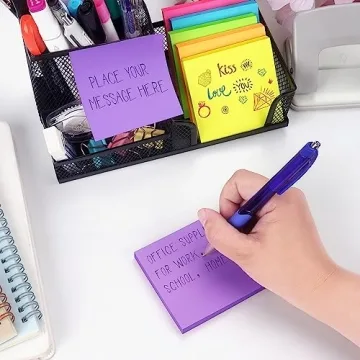 PLACE YOUR
MESSAGE HERE
kiss
love YOU
OFFICE SUPPL
FOR WORK,
SCHOOL, HOME